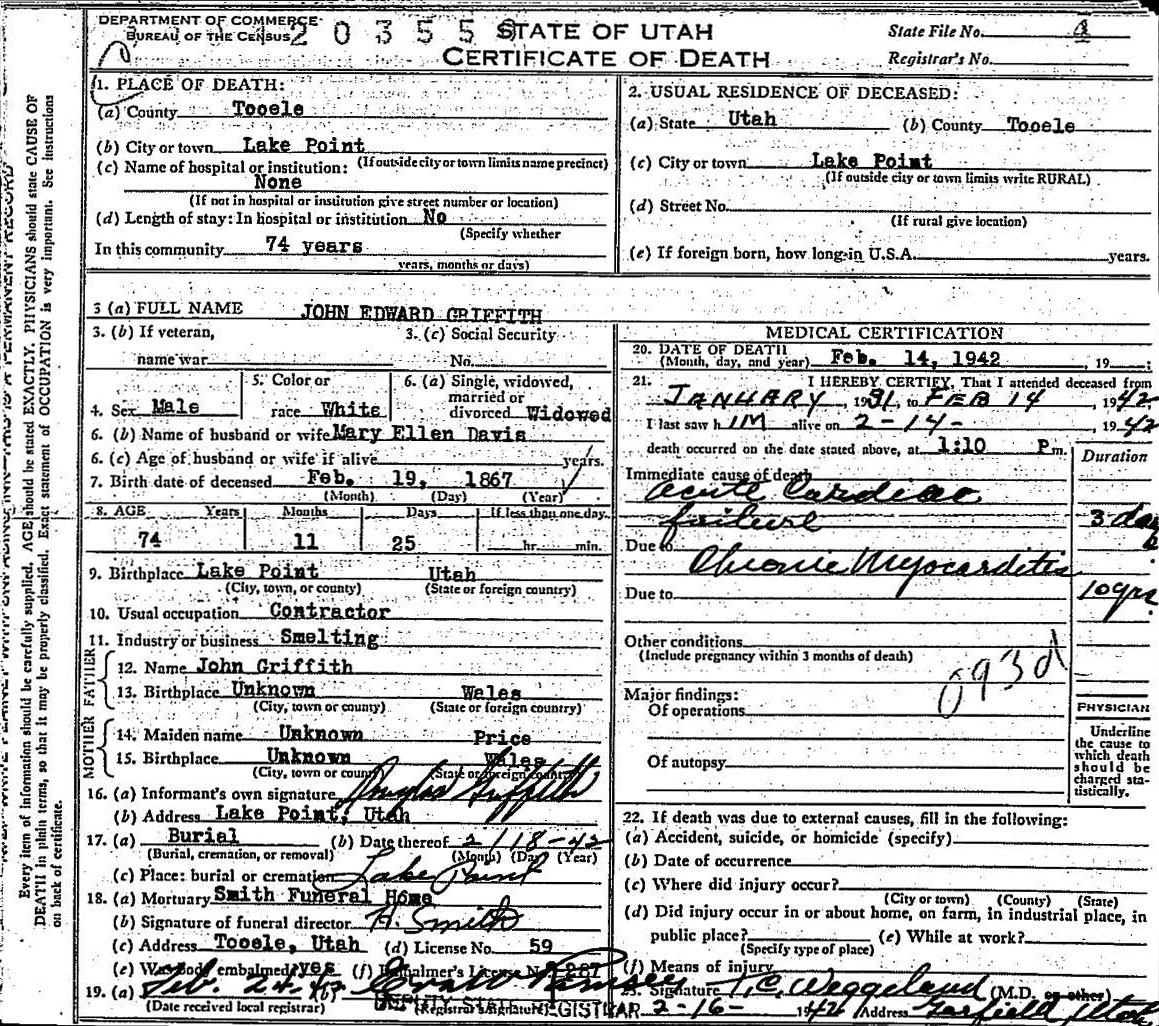 DEPARTMENT OF COMMERCE
BUREAU OF THE CENSUS
2 0 3 5 5
STATE OF UTAH
CERTIFICATE OF DEATH
State File No. 4
Registrar's No.
1. PLACE OF DEATH:
(a) County Tooele
(b) City or town Lake Point
(If outside city or town limits name precinct)
(c) Name of hospital or institution:
None
(If not in hospital or institution give street number or location)
(d) Length of stay: In hospital or institution No
(Specify whether
In this community 74 years
years, months or days)
2. USUAL RESIDENCE OF DECEASED:
(a) State Utah (b) County Tooele
(c) City or town Lake Point
(If outside city or town limits write RURAL)
(d) Street No.
(If rural give location)
(e) If foreign born, how long in U.S.A. years.
3 (a) FULL NAME JOHN EDWARD GRIFFITH
3. (b) If veteran, 3. (c) Social Security
name war No.
5. Color or 6. (a) Single, widowed,
married or
4. Sex Male race White divorced Widowed
6. (b) Name of husband or wife Mary Ellen Davis
6. (c) Age of husband or wife if alive years.
7. Birth date of deceased Feb. 19, 1867
(Month) (Day) (Year)
8. AGE Years Months Days If less than one day
74 11 25 hr. min.
9. Birthplace Lake Point Utah
(City, town, or county) (State or foreign country)
10. Usual occupation Contractor
11. Industry or business Smelting
FATHER
12. Name John Griffith
13. Birthplace Unknown Wales
(City, town or county) (State or foreign country)
MOTHER
14. Maiden name Unknown Price
15. Birthplace Unknown Wales
(City, town or county) (State or foreign country)
16. (a) Informant's own signature Douglas Griffith
(b) Address Lake Point, Utah
17. (a) Burial (b) Date thereof 2/18-42
(Burial, cremation, or removal) (Month) (Day) (Year)
(c) Place: burial or cremation Lake Point
18. (a) Mortuary Smith Funeral Home
(b) Signature of funeral director H. Smith
(c) Address Tooele, Utah (d) License No. 59
(e) Was body embalmed? yes (f) Embalmer's License No. 287
19. (a) Feb. 24-42
(Date received local registrar) (Registrar's signature)
DEPUTY STATE REGISTRAR
MEDICAL CERTIFICATION
20. DATE OF DEATH
(Month, day, and year) Feb. 14, 1942, 19
21. I HEREBY CERTIFY, That I attended deceased from
JANUARY, 1931, to FEB 14, 1942.
I last saw h IM alive on 2-14-, 1942
death occurred on the date stated above, at 1:10 P m.
Duration
Immediate cause of death
Acute Cardiac
failure 3 days
Due to
Chronic Myocarditis
Due to 10 yrs.
Other conditions
(Include pregnancy within 3 months of death)
093d
Major findings:
Of operations
Of autopsy
PHYSICIAN
Underline
the cause to
which death
should be
charged sta-
tistically.
22. If death was due to external causes, fill in the following:
(a) Accident, suicide, or homicide (specify)
(b) Date of occurrence
(c) Where did injury occur?
(City or town) (County) (State)
(d) Did injury occur in or about home, on farm, in industrial place, in
public place? (e) While at work?
(Specify type of place)
(f) Means of injury
23. Signature T. C. Weggeland (M.D. or other)
2-16- 1942 Address Garfield, Utah
Every item of information should be carefully supplied. AGE should be stated EXACTLY. PHYSICIANS should state CAUSE OF
DEATH in plain terms, so that it may be properly classified. Exact statement of OCCUPATION is very important. See instructions
on back of certificate.